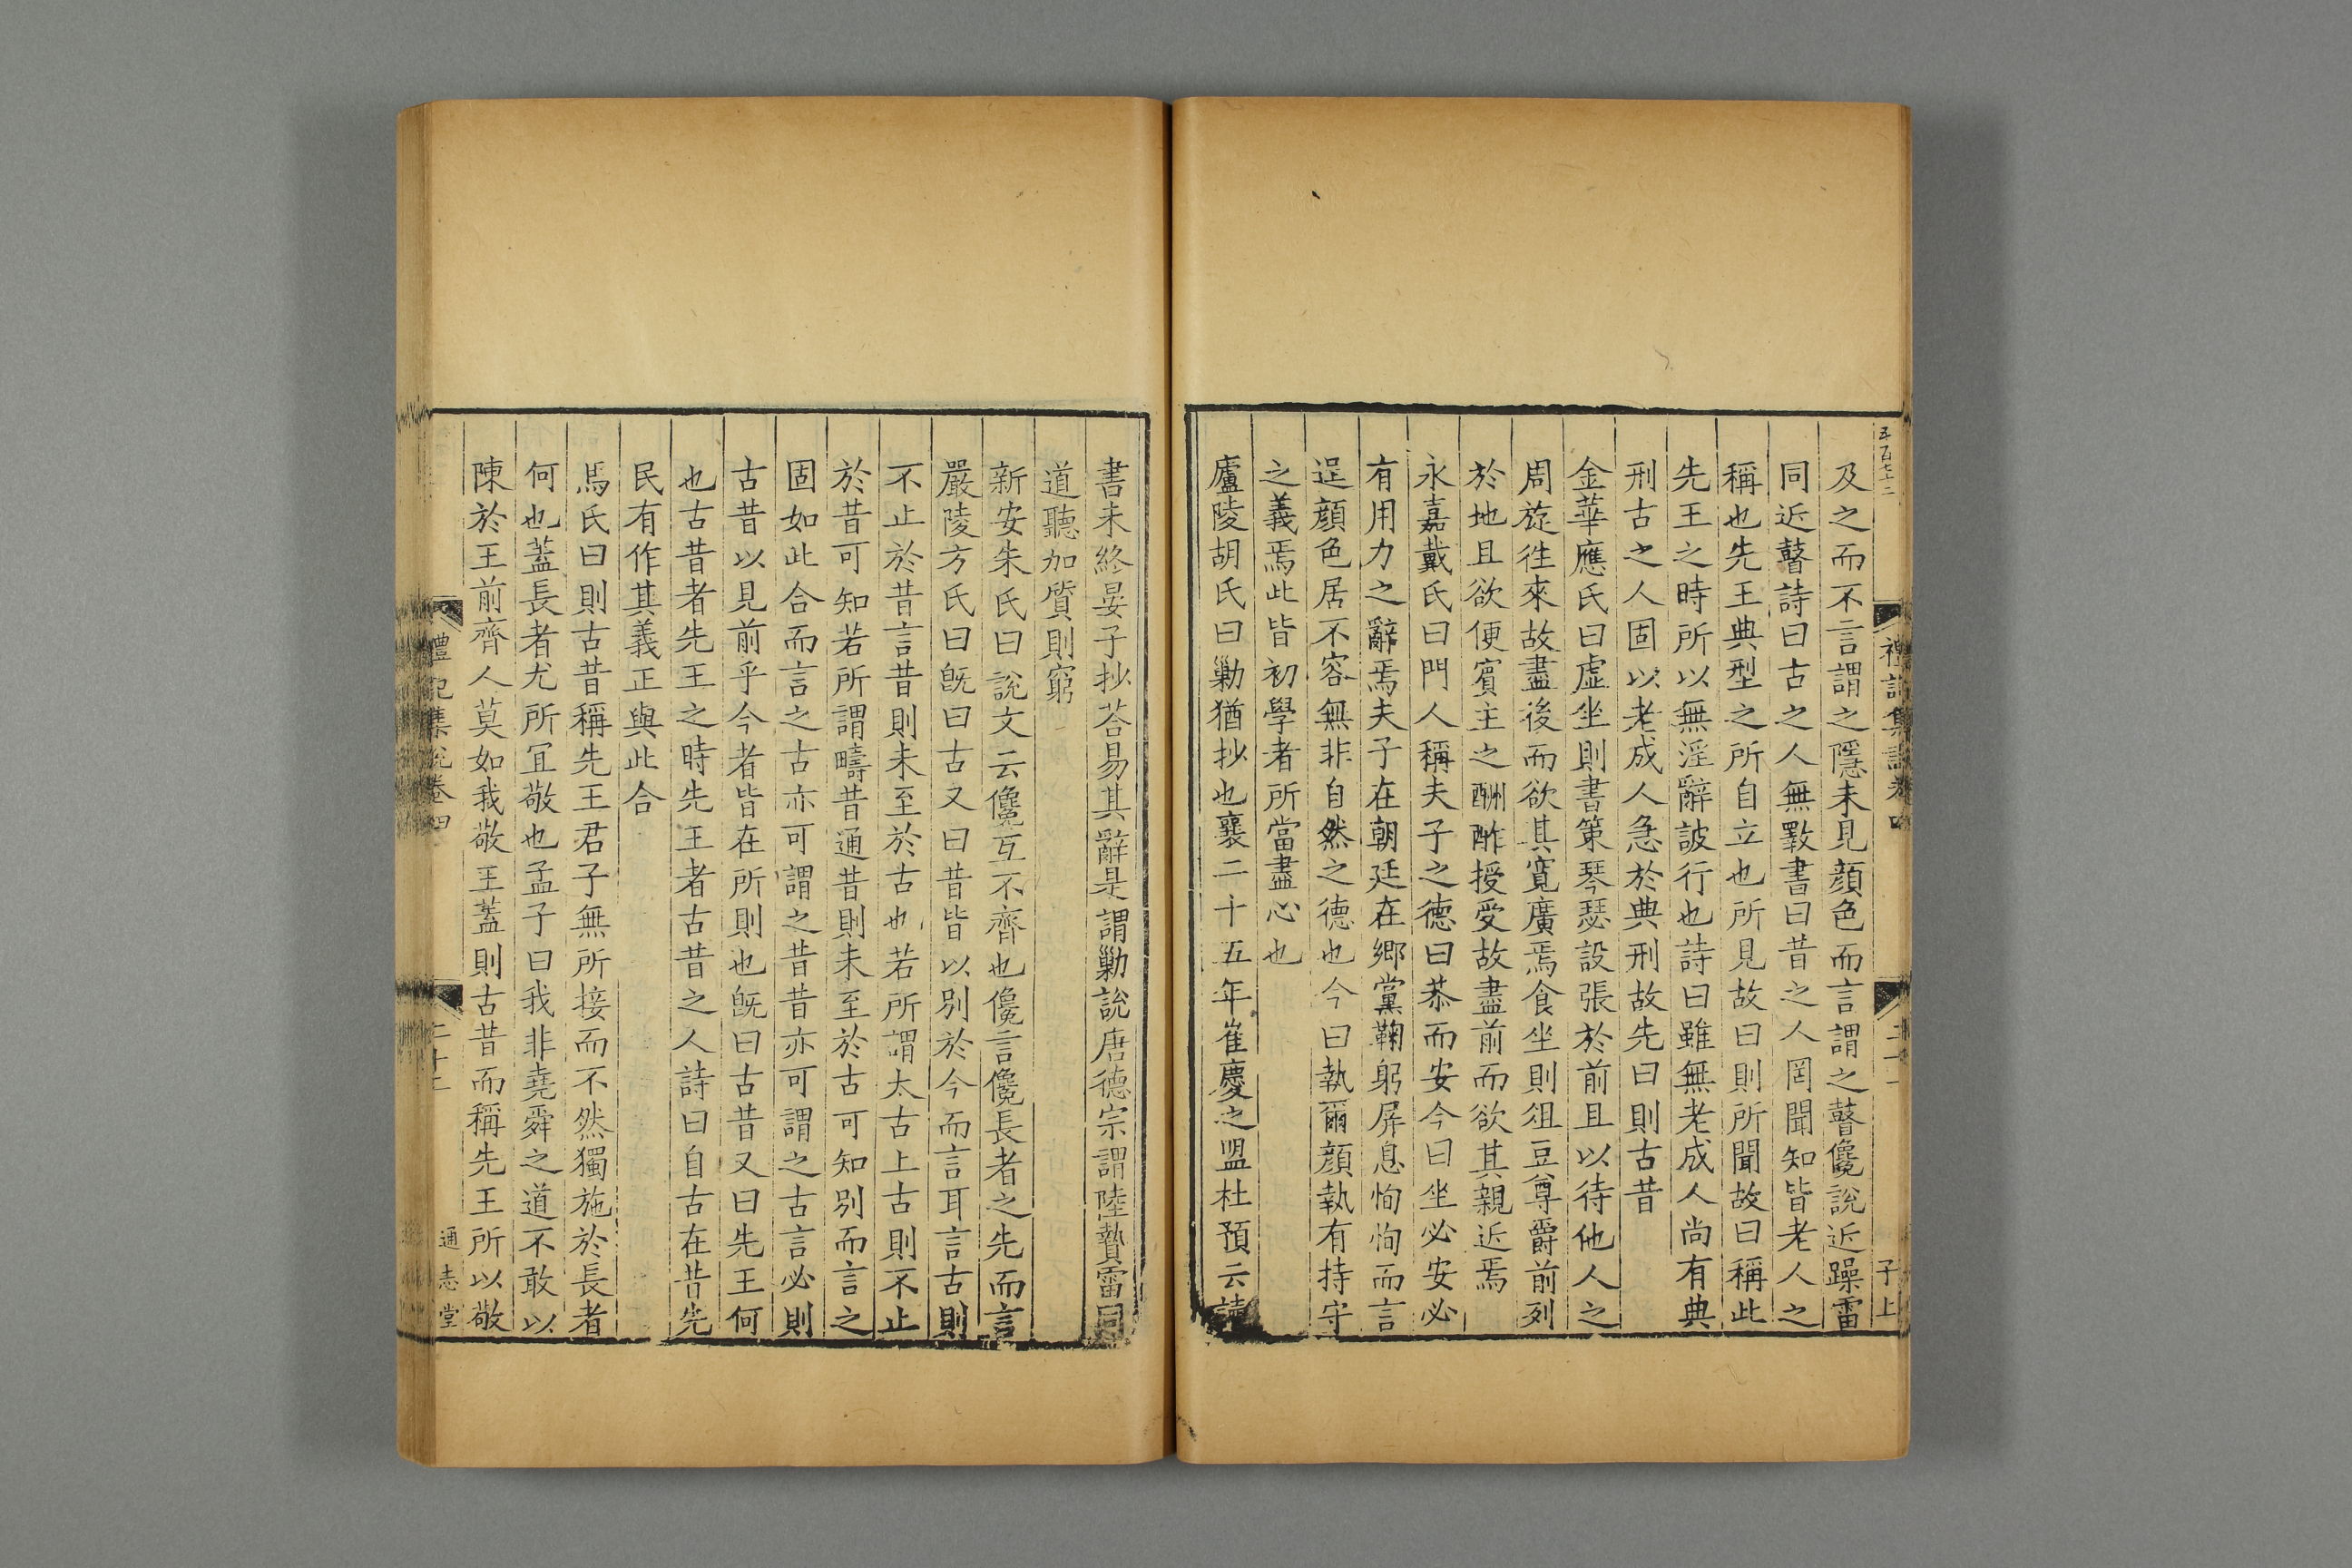 五百七十二
禮記集說卷四
二十一
子上
及之而不言謂之隱未見顔色而言謂之瞽儳說近躁雷
同近瞽詩曰古之人無斁書曰昔之人罔聞知皆老人之
稱也先王典型之所自立也所見故曰則所聞故曰稱此
先王之時所以無淫辭詖行也詩曰雖無老成人尚有典
刑古之人固以老成人急於典刑故先曰則古昔
金華應氏曰虛坐則書策琴瑟設張於前且以待他人之
周旋徃來故盡後而欲其寬廣焉食坐則俎豆尊爵前列
於地且欲便賓主之酬酢授受故盡前而欲其親近焉
永嘉戴氏曰門人稱夫子之德曰恭而安今曰坐必安必
有用力之辭焉夫子在朝廷在鄉黨鞠躬屏息恂恂而言
逞顔色居不容無非自然之德也今曰執爾顔執有持守
之義焉此皆初學者所當盡心也
廬陵胡氏曰勦猶抄也襄二十五年崔慶之盟杜預云讀
書未終晏子抄荅易其辭是謂勦說唐德宗謂陸贄雷同
道聽加質則窮
新安朱氏曰說文云儳互不齊也儳言儳長者之先而言
嚴陵方氏曰旣曰古又曰昔皆以別於今而言耳言古則
不止於昔言昔則未至於古也若所謂太古上古則不止
於昔可知若所謂疇昔通昔則未至於古可知別而言之
固如此合而言之古亦可謂之昔昔亦可謂之古言必則
古昔以見前乎今者皆在所則也旣曰古昔又曰先王何
也古昔者先王之時先王者古昔之人詩曰自古在昔先
民有作其義正與此合
馬氏曰則古昔稱先王君子無所接而不然獨施於長者
何也蓋長者尤所宜敬也孟子曰我非堯舜之道不敢以
陳於王前齊人莫如我敬王蓋則古昔而稱先王所以敬
禮記集說卷四
二十二
通志堂